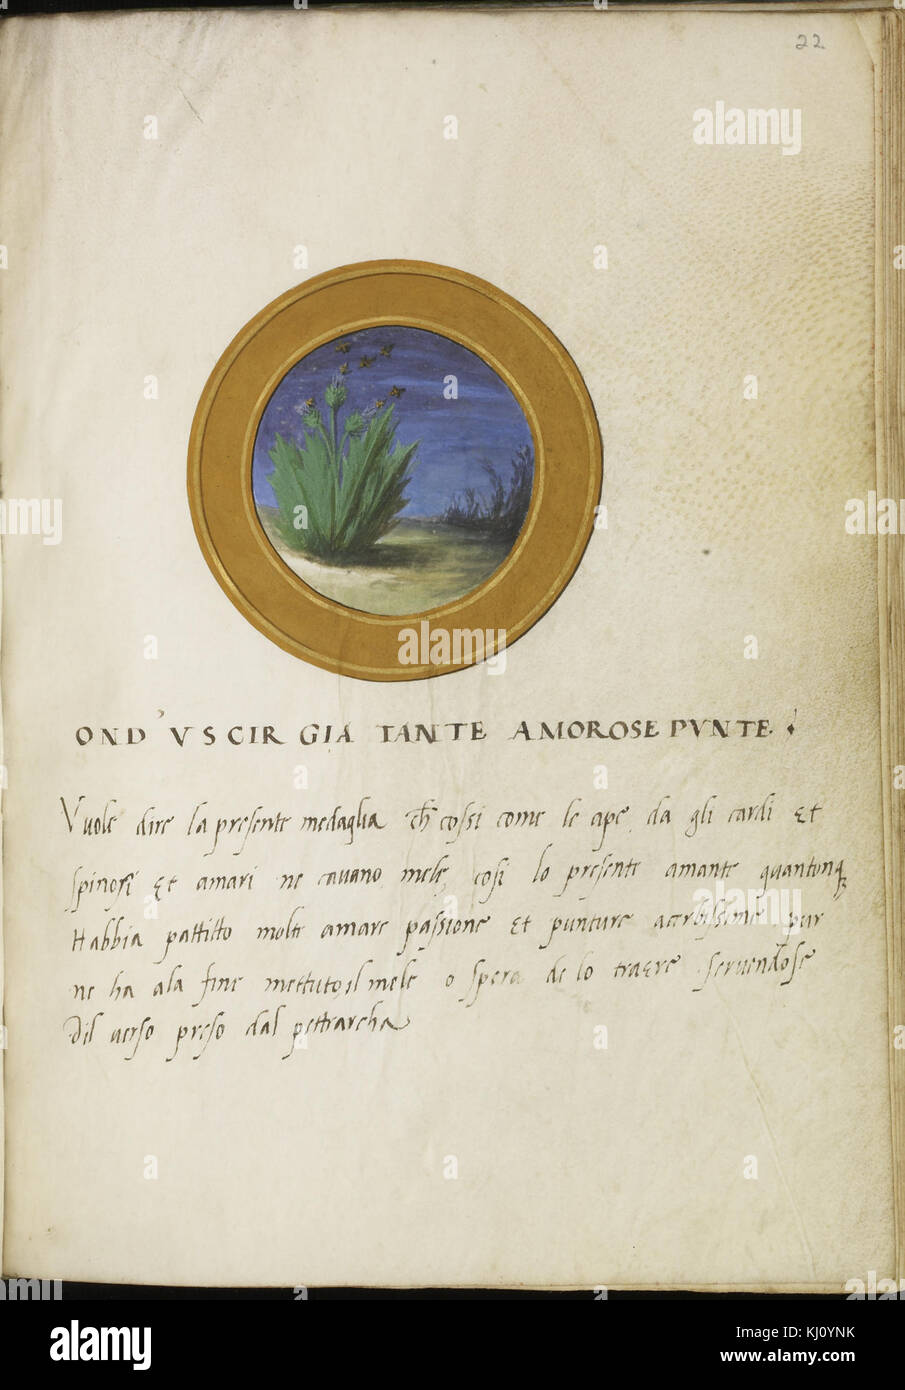 22
OND' VSCIR GIA TANTE AMOROSE PVNTE.
Vuole dire la presente medaglia ch cossi come le ape da gli cardi et
spinosi et amari ne cavano mele, cosi lo presente amante quantonq
Habbia pattitto molte amare passione et punture acerbissime pur
ne ha ala fine mettuto il mele o spera de lo traere servendose
dil verso preso dal pettrarcha
alamy
Image ID: KJ0YNK
www.alamy.com